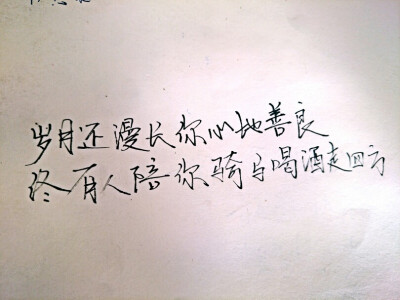 岁月还漫长你心地善良
终有人陪你骑马喝酒走四方